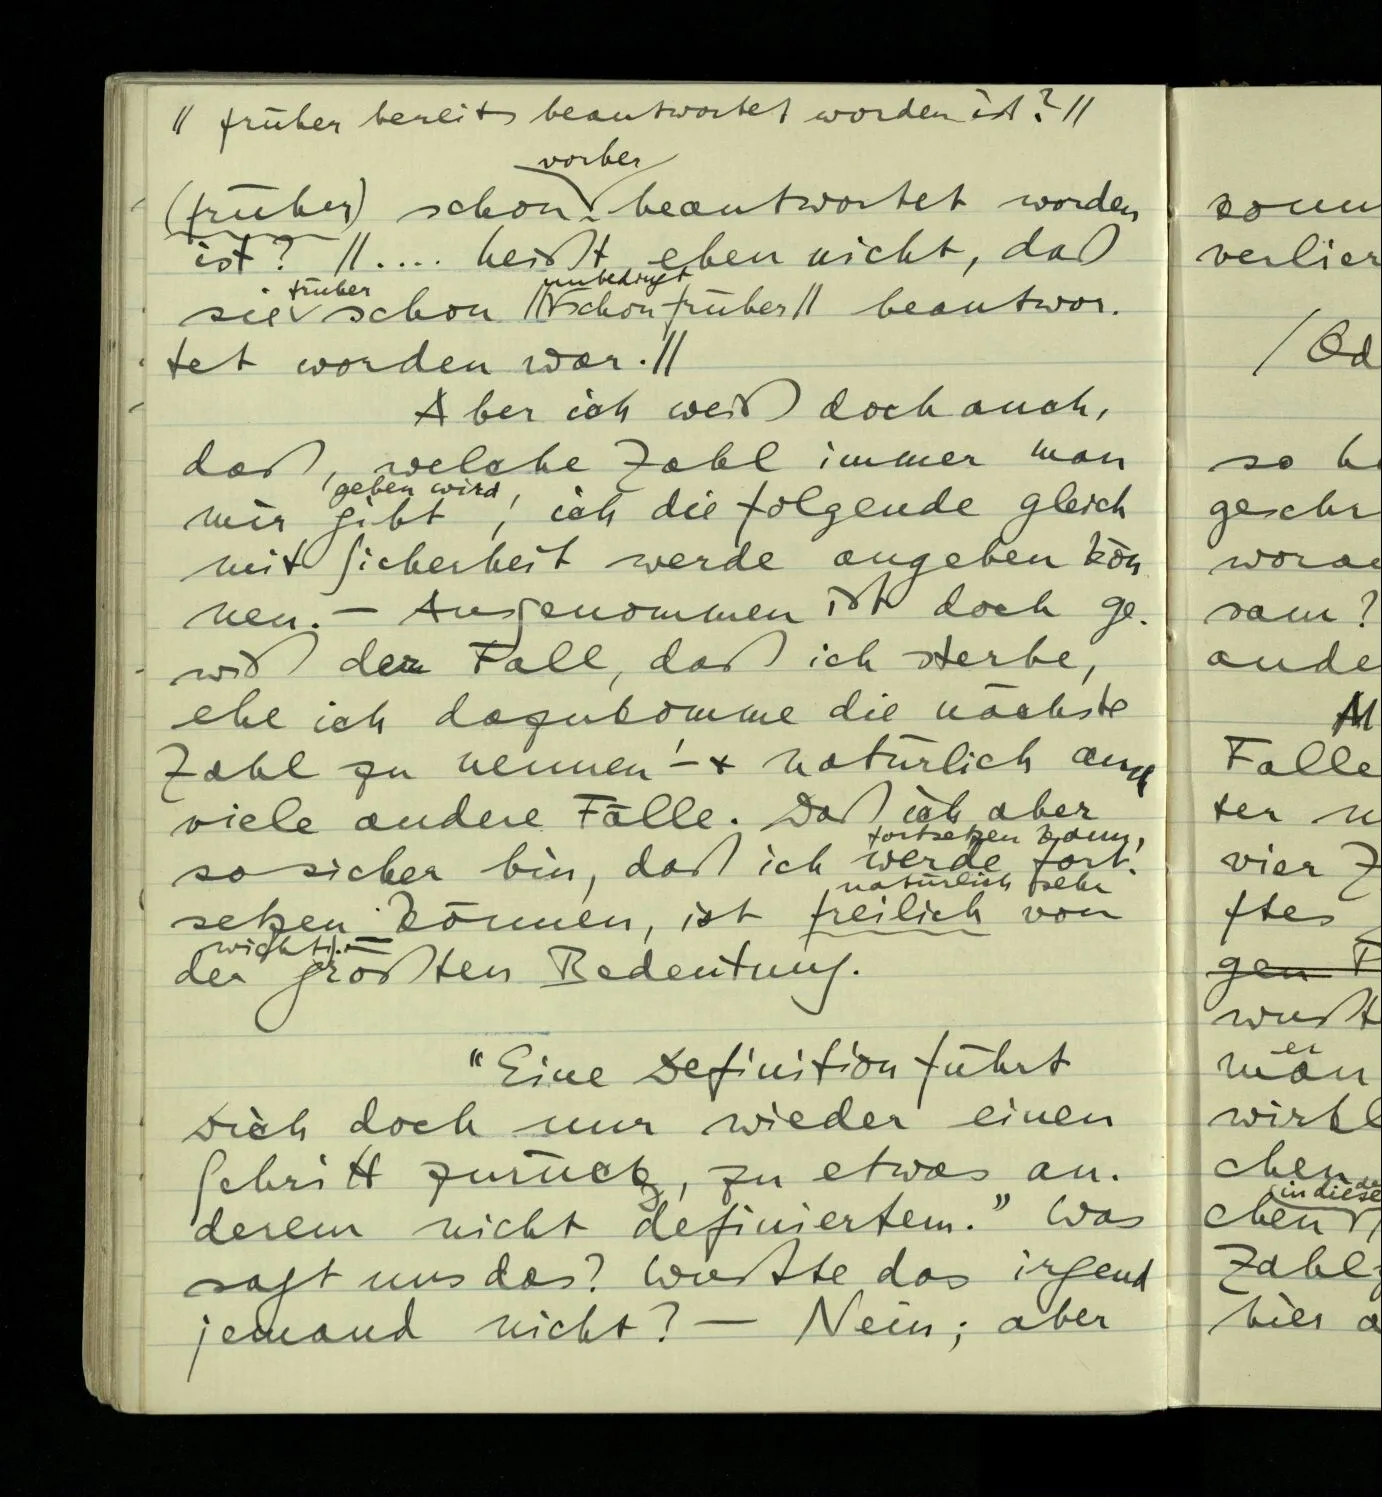 // früher bereits beantwortet worden ist? //
vorher
(früher) schon beantwortet worden
ist? //.... heißt eben nicht, daß
früher unbedingt
sie schon // schon früher // beantwor-
tet worden war. //
Aber ich weiß doch auch,
daß, welche Zahl immer man
geben wird,
mir gibt, ich die folgende gleich
mit Sicherheit werde angeben kön
nen. – Ausgenommen ist doch ge-
wiß der Fall, daß ich sterbe,
ehe ich dazukomme die nächste
Zahl zu nennen! – + natürlich auch
viele andere Fälle. Daß ich aber
fortsetzen kann,
so sicher bin, daß ich werde fort-
natürlich sehr
setzen können, ist freilich von
wichtig. –
der größten Bedeutung.
"Eine Definition führt
Dich doch nur wieder einen
Schritt zurück, zu etwas an-
derem nicht definiertem." Was
sagt uns das? Wußte das irgend
jemand nicht? – Nein; aber
verlier
so
geschr
ande
Falle
ter
vier Z
ftes
gen
wußt
er
man
wirkl
chen
in diese
chen
Zahl
hier a